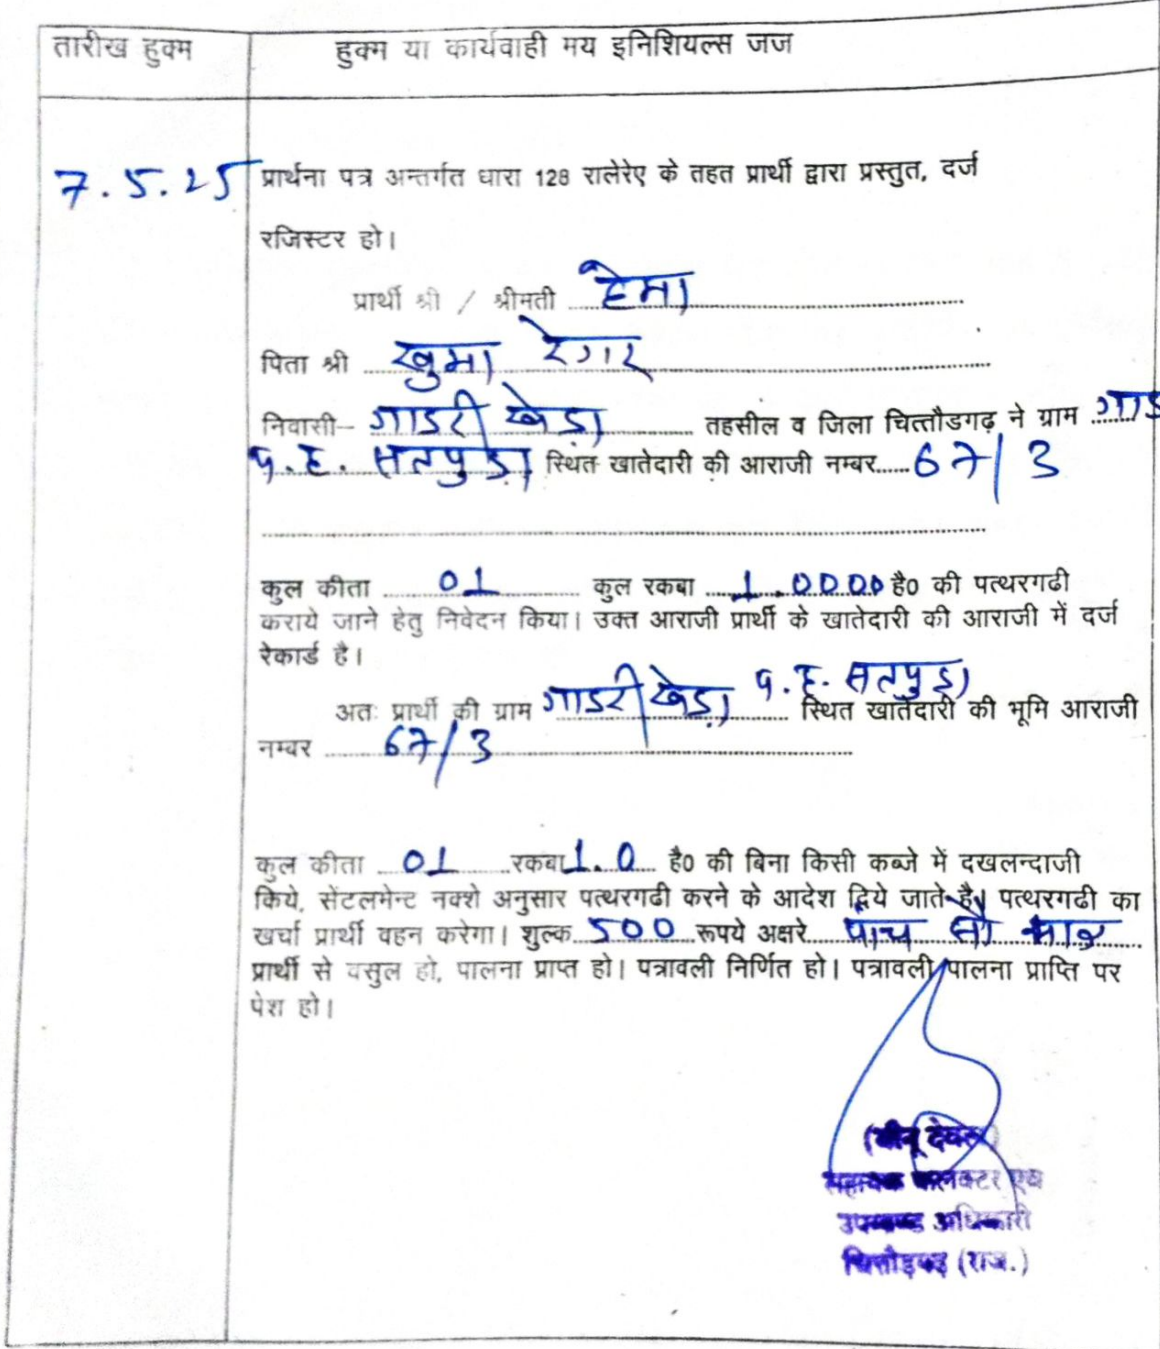 तारीख हुक्म
हुक्म या कार्यवाही मय इनिशियल्स जज
7.5.25
प्रार्थना पत्र अन्तर्गत धारा 128 रालेरेए के तहत प्रार्थी द्वारा प्रस्तुत, दर्ज
रजिस्टर हो।
प्रार्थी श्री / श्रीमती हेमा
पिता श्री खुमा रेगर
निवासी- गाडरी खेड़ा तहसील व जिला चित्तौडगढ़ ने ग्राम गाड
प.ह. सतपुड़ा स्थित खातेदारी की आराजी नम्बर......67/3
कुल कीता 01 कुल रकबा 1.0000 है0 की पत्थरगढी
कराये जाने हेतु निवेदन किया। उक्त आराजी प्रार्थी के खातेदारी की आराजी में दर्ज
रेकार्ड है।
अतः प्रार्थी की ग्राम गाडरी खेड़ा प.ह. सतपुड़ा स्थित खातेदारी की भूमि आराजी
नम्बर 67/3
कुल कीता 01 रकबा 1.0 है0 की बिना किसी कब्जे में दखलन्दाजी
किये, सेंटलमेन्ट नक्शे अनुसार पत्थरगढी करने के आदेश दिये जाते है। पत्थरगढी का
खर्चा प्रार्थी वहन करेगा। शुल्क 500 रूपये अक्षरे पांच सौ मात्र
प्रार्थी से वसुल हो, पालना प्राप्त हो। पत्रावली निर्णित हो। पत्रावली पालना प्राप्ति पर
पेश हो।
सहायक कलक्टर एवं
उपखण्ड अधिकारी
चित्तौड़गढ़ (राज.)